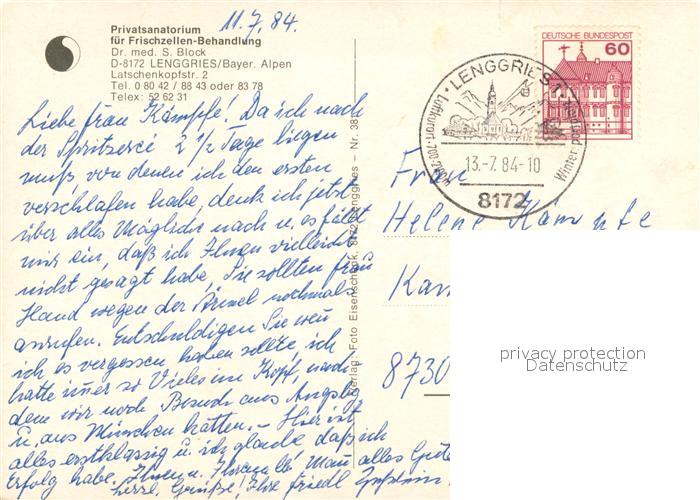 11.7.84.
Privatsanatorium
für Frischzellen-Behandlung
Dr. med. S. Block
D-8172 LENGGRIES/Bayer. Alpen
Latschenkopfstr. 2
Tel. 0 80 42 / 88 43 oder 83 78
Telex: 52 62 31
Liebe Frau Kämpfe! Da ich nach
der Spritzerei 2 1/2 Tage liegen
muß von denen ich den ersten
verschlafen habe, denk ich jetzt
über alles Mögliche nach u. es fällt
mir ein, daß ich Ihnen vielleicht
nicht gesagt habe, Sie sollten Frau
Hand wegen der Ärmel nochmals
anrufen. Entschuldigen Sie wenn
ich es vergessen haben sollte, ich
hatte immer so Vieles im Kopf, nach
dem wir noch Besuch aus
u. aus München hatten. – Hier ist
alles erstklassig u. ich glaube daß ich
Erfolg habe. Ihnen u. Ihrem lb. Mann alles Gute
herzl. Grüße! Ihre Friedl
Verlag: Foto Eisenschenk, 8172 Lenggries – Nr. 38
DEUTSCHE BUNDESPOST
60
LENGGRIES 1
Luftkurort
Wintersport
13.-7.84-10
8172
Frau
Helene
8730
privacy protection
Datenschutz